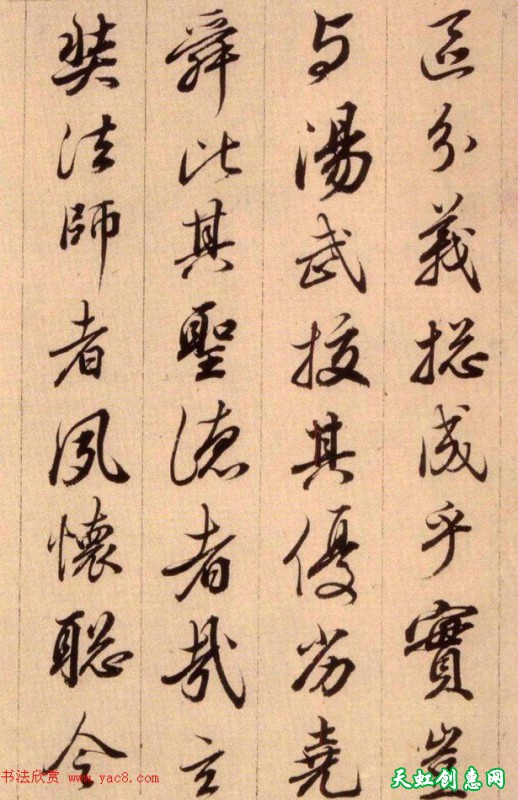 區分義揔成乎實豈
与湯武挍其優劣堯
舜比其聖德者哉玄
奘法師者夙懷聰令
书法欣赏 www.yac8.com
天虹创惠网